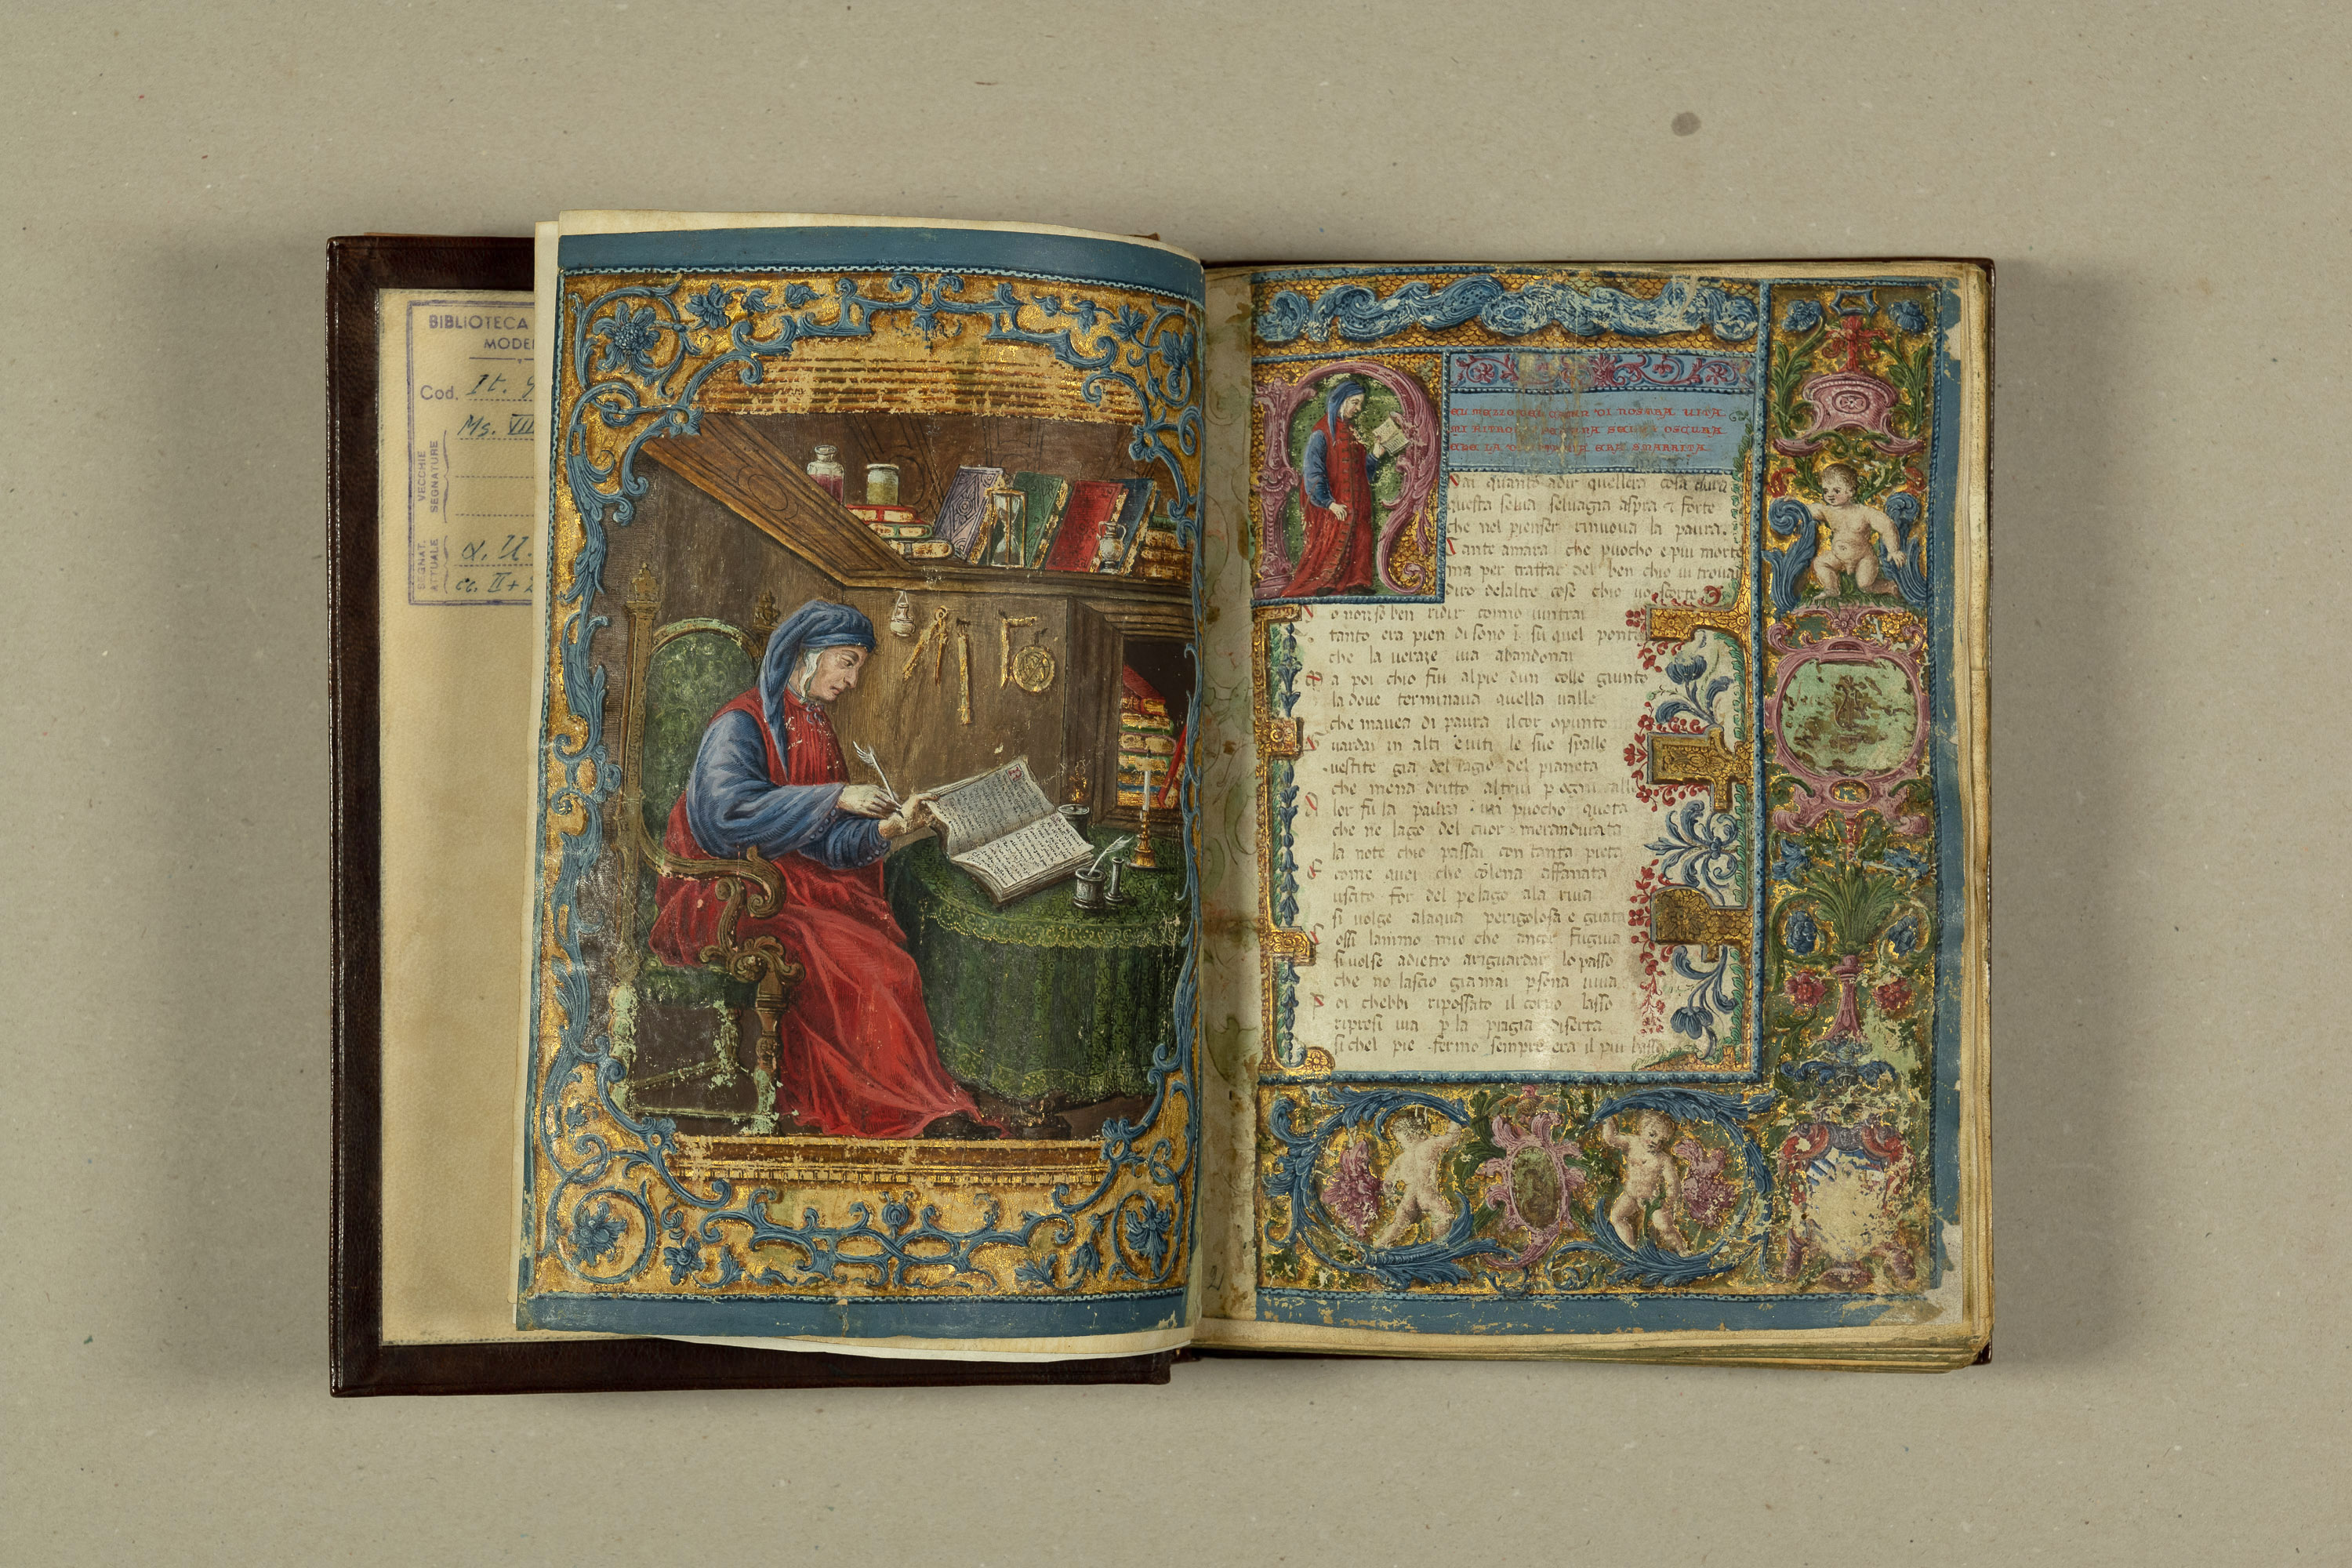 BIBLIOTECA
MODE
Cod. It.
Ms. VII
VECCHIE
SEGNATURE
SEGNAT.
ATTUALE
α. U.
cc. II +
EL MEZZO DEL DI NOSTRA UITA
MI RITRO OSCURA
CHE LA ERA SMARRITA
ai quanto adir quellera cosa dura
questa selua seluagia aspra & forte
che nel pienser rinuoua la paura
Tante amara che puocho e piu morte
ma per trattar del ben chio ui trouai
diro delaltre cose chio uo scorte
o non so ben ridir como uintrai
tanto era pien di sono i su quel ponto
che la ueraze uia abandonai
Ma poi chio fui alpie dun colle giunto
la doue terminaua quella ualle
che mauea di paura il cor opunto
uardai in alti euiti le sue spalle
uestite gia del ragio del pianeta
che mena dritto altrui p ogni calle
A lor fu la paura un puocho queta
che ne lago del cuor merandurata
la note chio passai con tanta pieta
E come quei che cō lena affanata
uscito for del pelago ala riua
si uolge alaqua perigolosa e guata
ossi lanimo mio che ancor fugiua
si uolse adietro ariguardar lo passo
che no lascio gia mai psona uiua
P oi chebbi ripossato il corpo lasso
ripresi uia p la piagia diserta
si chel pie fermo sempre era il piu basso
2